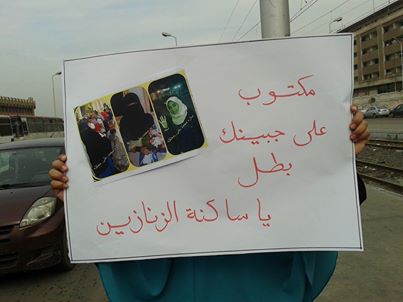 مكتوب
على جبينك
بطل
يا ساكنة الزنازين